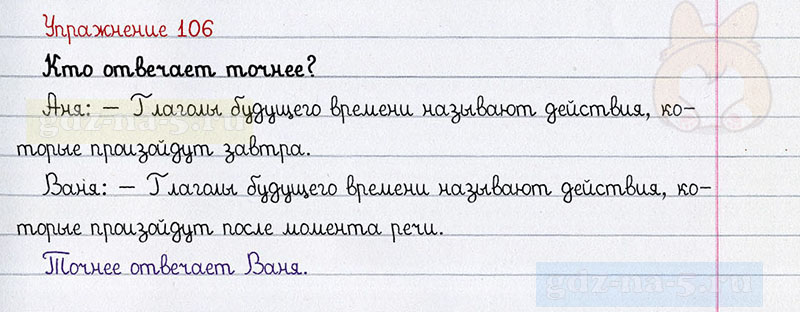 Упражнение 106
Кто отвечает точнее?
Аня: – Глаголы будущего времени называют действия, ко-
gdz-na-5.ru
торые произойдут завтра.
Ваня: – Глаголы будущего времени называют действия, ко-
торые произойдут после момента речи.
Точнее отвечает Ваня.
gdz-na-5.ru